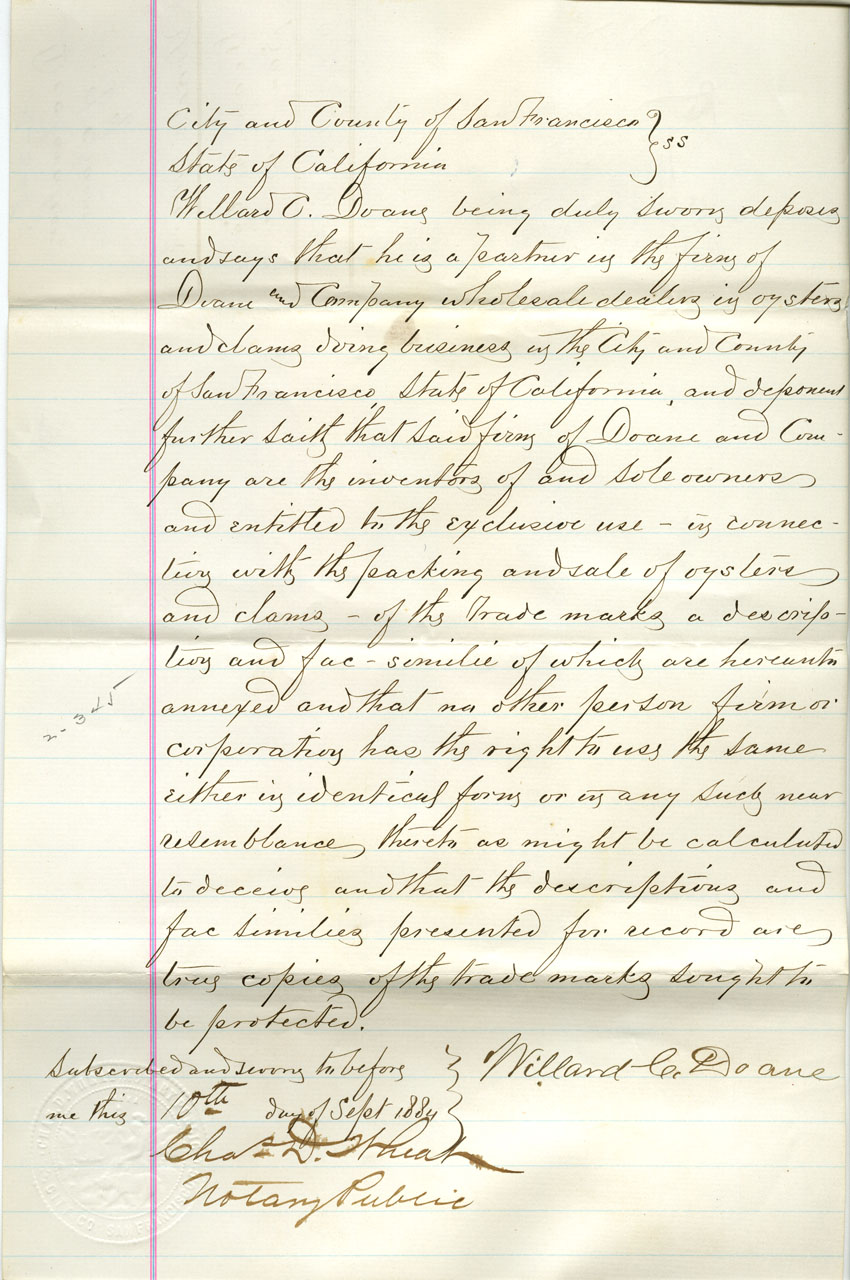 City and County of San Francisco } ss
State of California
Willard C. Doane being duly sworn deposes
and says that he is a partner in the firm of
Doane and Company wholesale dealers in oysters
and clams doing business in the City and County
of San Francisco, State of California, and deponent
further saith that said firm of Doane and Com-
pany are the inventors of and sole owners
and entitled to the exclusive use - in connec-
tion with the packing and sale of oysters
and clams - of the trade marks a descrip-
tion and fac-similie of which are hereunto
annexed and that no other person firm or
corporation has the right to use the same
either in identical form or in any such near
resemblance thereto as might be calculated
to deceive and that the descriptions and
fac similies presented for record are
true copies of the trade marks sought to
be protected.
Subscribed and sworn to before } Willard C. Doane
me this 10th day of Sept 1884
Chas. D. Wheat
Notary Public